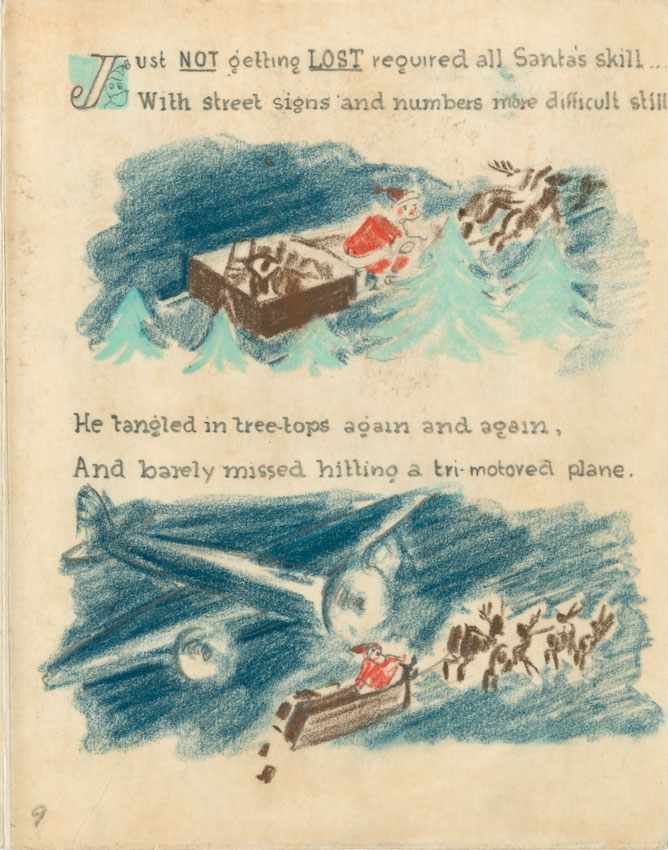 Just NOT getting LOST required all Santa's skill...
With street signs and numbers more difficult still
He tangled in tree-tops again and again,
And barely missed hitting a tri-motored plane.
9